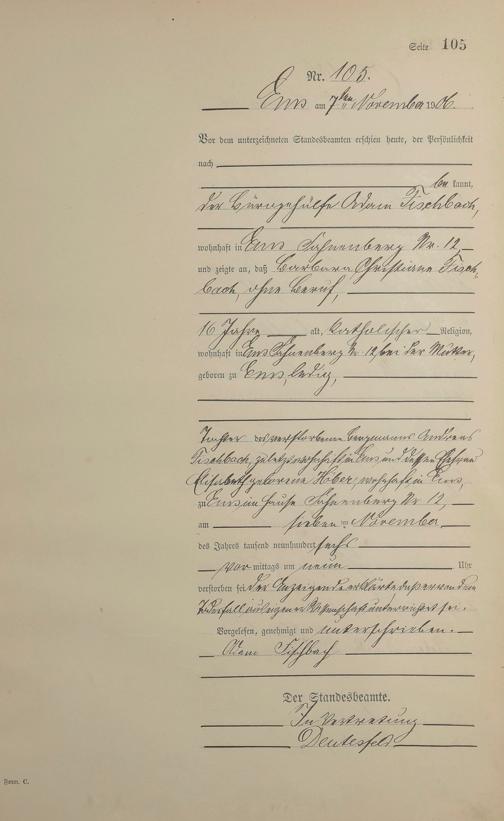 Seite 105
Nr. 105.
Ems am 7ten November 1906.
Vor dem unterzeichneten Standesbeamten erschien heute, der Persönlichkeit
nach
be kannt,
der Bürogehülfe Adam Fischbach,
wohnhaft in Ems Hahnenberg Nr. 12,
und zeigte an, daß Barbara Christiane Fisch-
bach, ohne Beruf,
16 Jahre alt, katholischer Religion,
wohnhaft in Ems Hahnenberg Nr. 12, bei der Mutter,
geboren zu Ems, ledig,
Tochter des verstorbenen Bergmanns Andreas
Fischbach, zuletzt wohnhaft in Ems und dessen Ehefrau
Elisabeth geborene Höber, wohnhaft in Ems,
zu Ems im Hause Hahnenberg Nr. 12,
am sieben ten November
des Jahres tausend neunhundert sechs
vor mittags um neun Uhr
verstorben sei. Der Anzeigende erklärte daß er von dem
Sterbefall aus eigener Wissenschaft unterrichtet sei.
Vorgelesen, genehmigt und unterschrieben.
Adam Fischbach
Der Standesbeamte.
In Vertretung
Form. C.